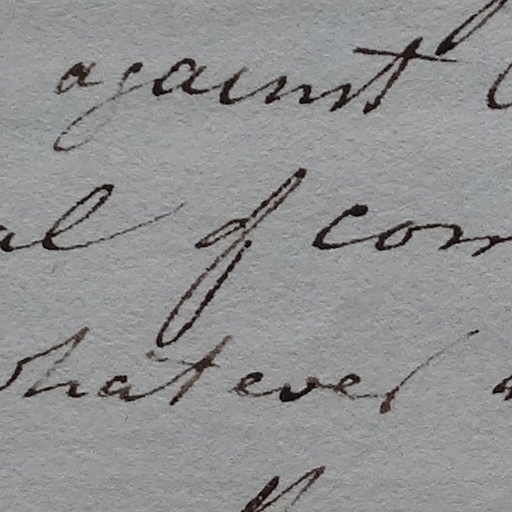 against
al of com
whatever